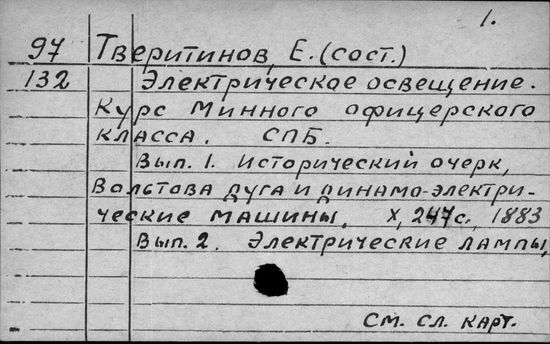 1.
97 Тверитинов, Е. (сост.)
132 Электрическое освещение.
Курс Минного офицерского
класса. СПБ.
Вып. 1. Исторический очерк,
Вольтова дуга и динамо-электри-
ческие машины. X, 247 с., 1883
Вып. 2. Электрические лампы,
См. сл. карт.